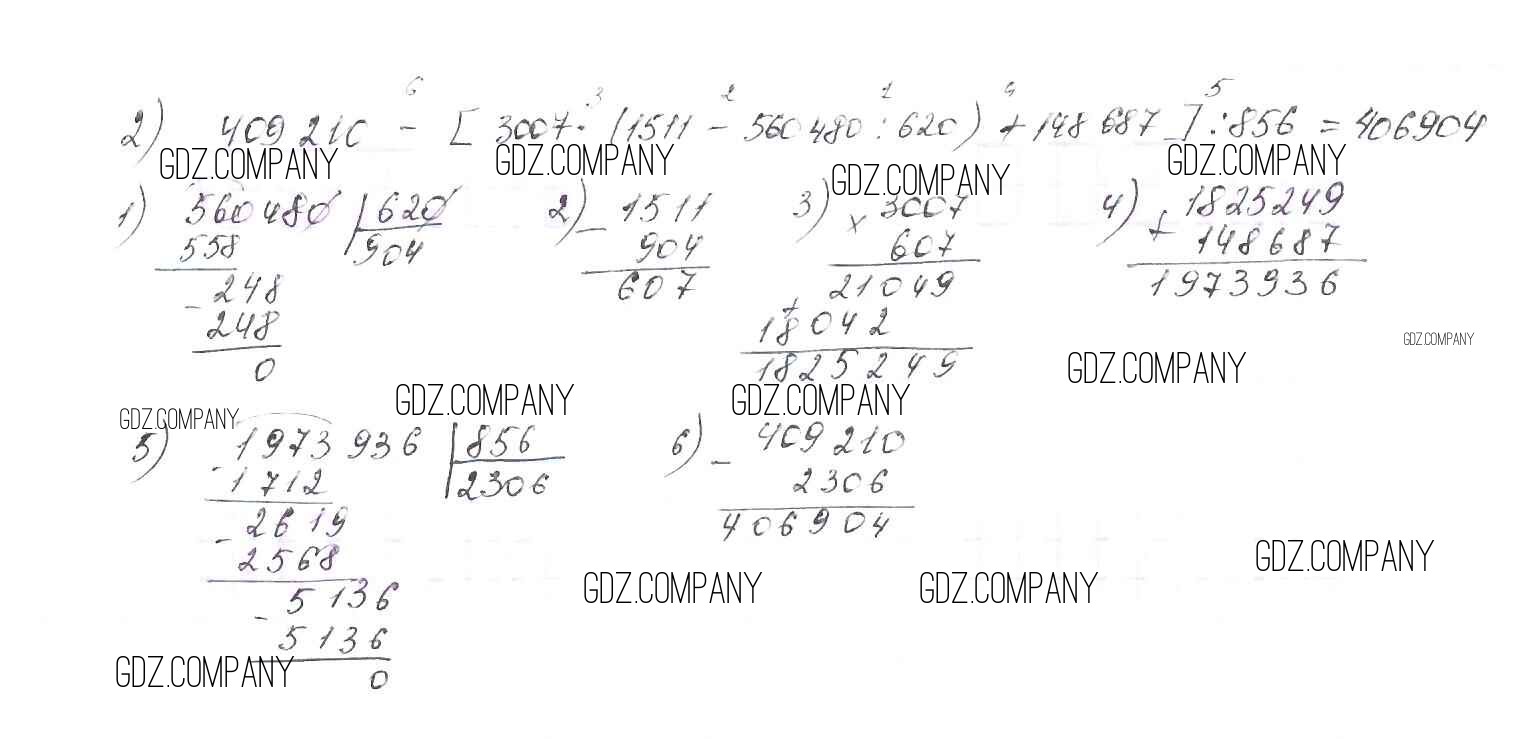 6 3 2 1 4 5
2) 409 210 - [ 3007 · (1511 - 560 480 : 620) + 148 687 ] : 856 = 406904
GDZ.COMPANY GDZ.COMPANY GDZ.COMPANY GDZ.COMPANY
1) 560480 620 2) - 1511 3) × 3007 4) + 1825249
558 904 904 607 148687
- 248 607 21049 1973936
248 + 18042
0 1825249
GDZ.COMPANY
GDZ.COMPANY
GDZ.COMPANY GDZ.COMPANY
GDZ.COMPANY
5) - 1973936 856 6) - 409210
1712 2306 2306
- 2619 406904
2568
- 5136
5136
0
GDZ.COMPANY
GDZ.COMPANY GDZ.COMPANY
GDZ.COMPANY